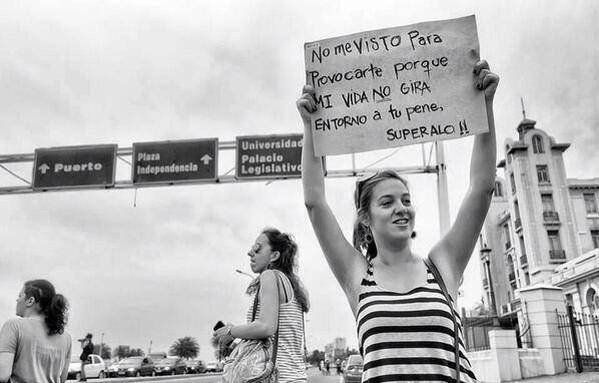 No me VISTO Para
Provocarte porque
MI VIDA NO GIRA
ENTORNO a tu pene,
SUPERALO !!
↑ Puerto
Plaza ↑
Independencia
Universidad
Palacio
Legislativo